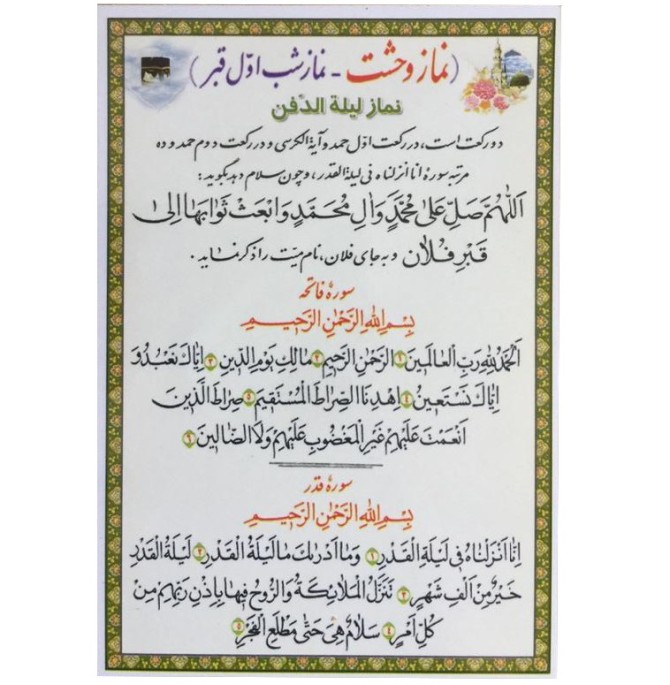 (نماز وحشت - نماز شب اوّل قبر)
نماز لیلة الدّفن
دو رکعت است، در رکعت اوّل حمد و آیة الکرسی و در رکعت دوم حمد و ده
مرتبه سورهٔ انا انزلناه فی لیلة القدر، و چون سلام دهد بگوید:
اَللّٰهُمَّ صَلِّ عَلىٰ مُحَمَّدٍ وَاٰلِ مُحَمَّدٍ وَابْعَثْ ثَوابَهٰا اِلىٰ
قَبْرِ فُلٰان و به جای فلان، نام میّت را ذکر نماید.
سورهٔ فاتحه
بِسْمِ اللهِ الرَّحْمٰنِ الرَّحٖيمِ
اَلْحَمْدُ لِلّٰهِ رَبِّ الْعٰالَمٖينَ ۱ اَلرَّحْمٰنِ الرَّحٖيمِ ۲ مٰالِكِ يَوْمِ الدّٖينِ ۳ اِيّٰاكَ نَعْبُدُ وَ
اِيّٰاكَ نَسْتَعٖينُ ۴ اِهْدِنَا الصِّرٰاطَ الْمُسْتَقٖيمَ ۵ صِرٰاطَ الَّذٖينَ
اَنْعَمْتَ عَلَيْهِمْ غَيْرِ الْمَغْضُوبِ عَلَيْهِمْ وَلَا الضّٰالّٖينَ ۶
سورهٔ قدر
بِسْمِ اللهِ الرَّحْمٰنِ الرَّحٖيمِ
اِنّٰا اَنْزَلْنٰاهُ فٖى لَيْلَةِ الْقَدْرِ ۱ وَمٰا اَدْرٰىكَ مٰا لَيْلَةُ الْقَدْرِ ۲ لَيْلَةُ الْقَدْرِ
خَيْرٌ مِنْ اَلْفِ شَهْرٍ ۳ تَنَزَّلُ الْمَلٰائِكَةُ وَالرُّوحُ فٖيهٰا بِاِذْنِ رَبِّهِمْ مِنْ
كُلِّ اَمْرٍ ۴ سَلٰامٌ هِىَ حَتّٰى مَطْلَعِ الْفَجْرِ ۵